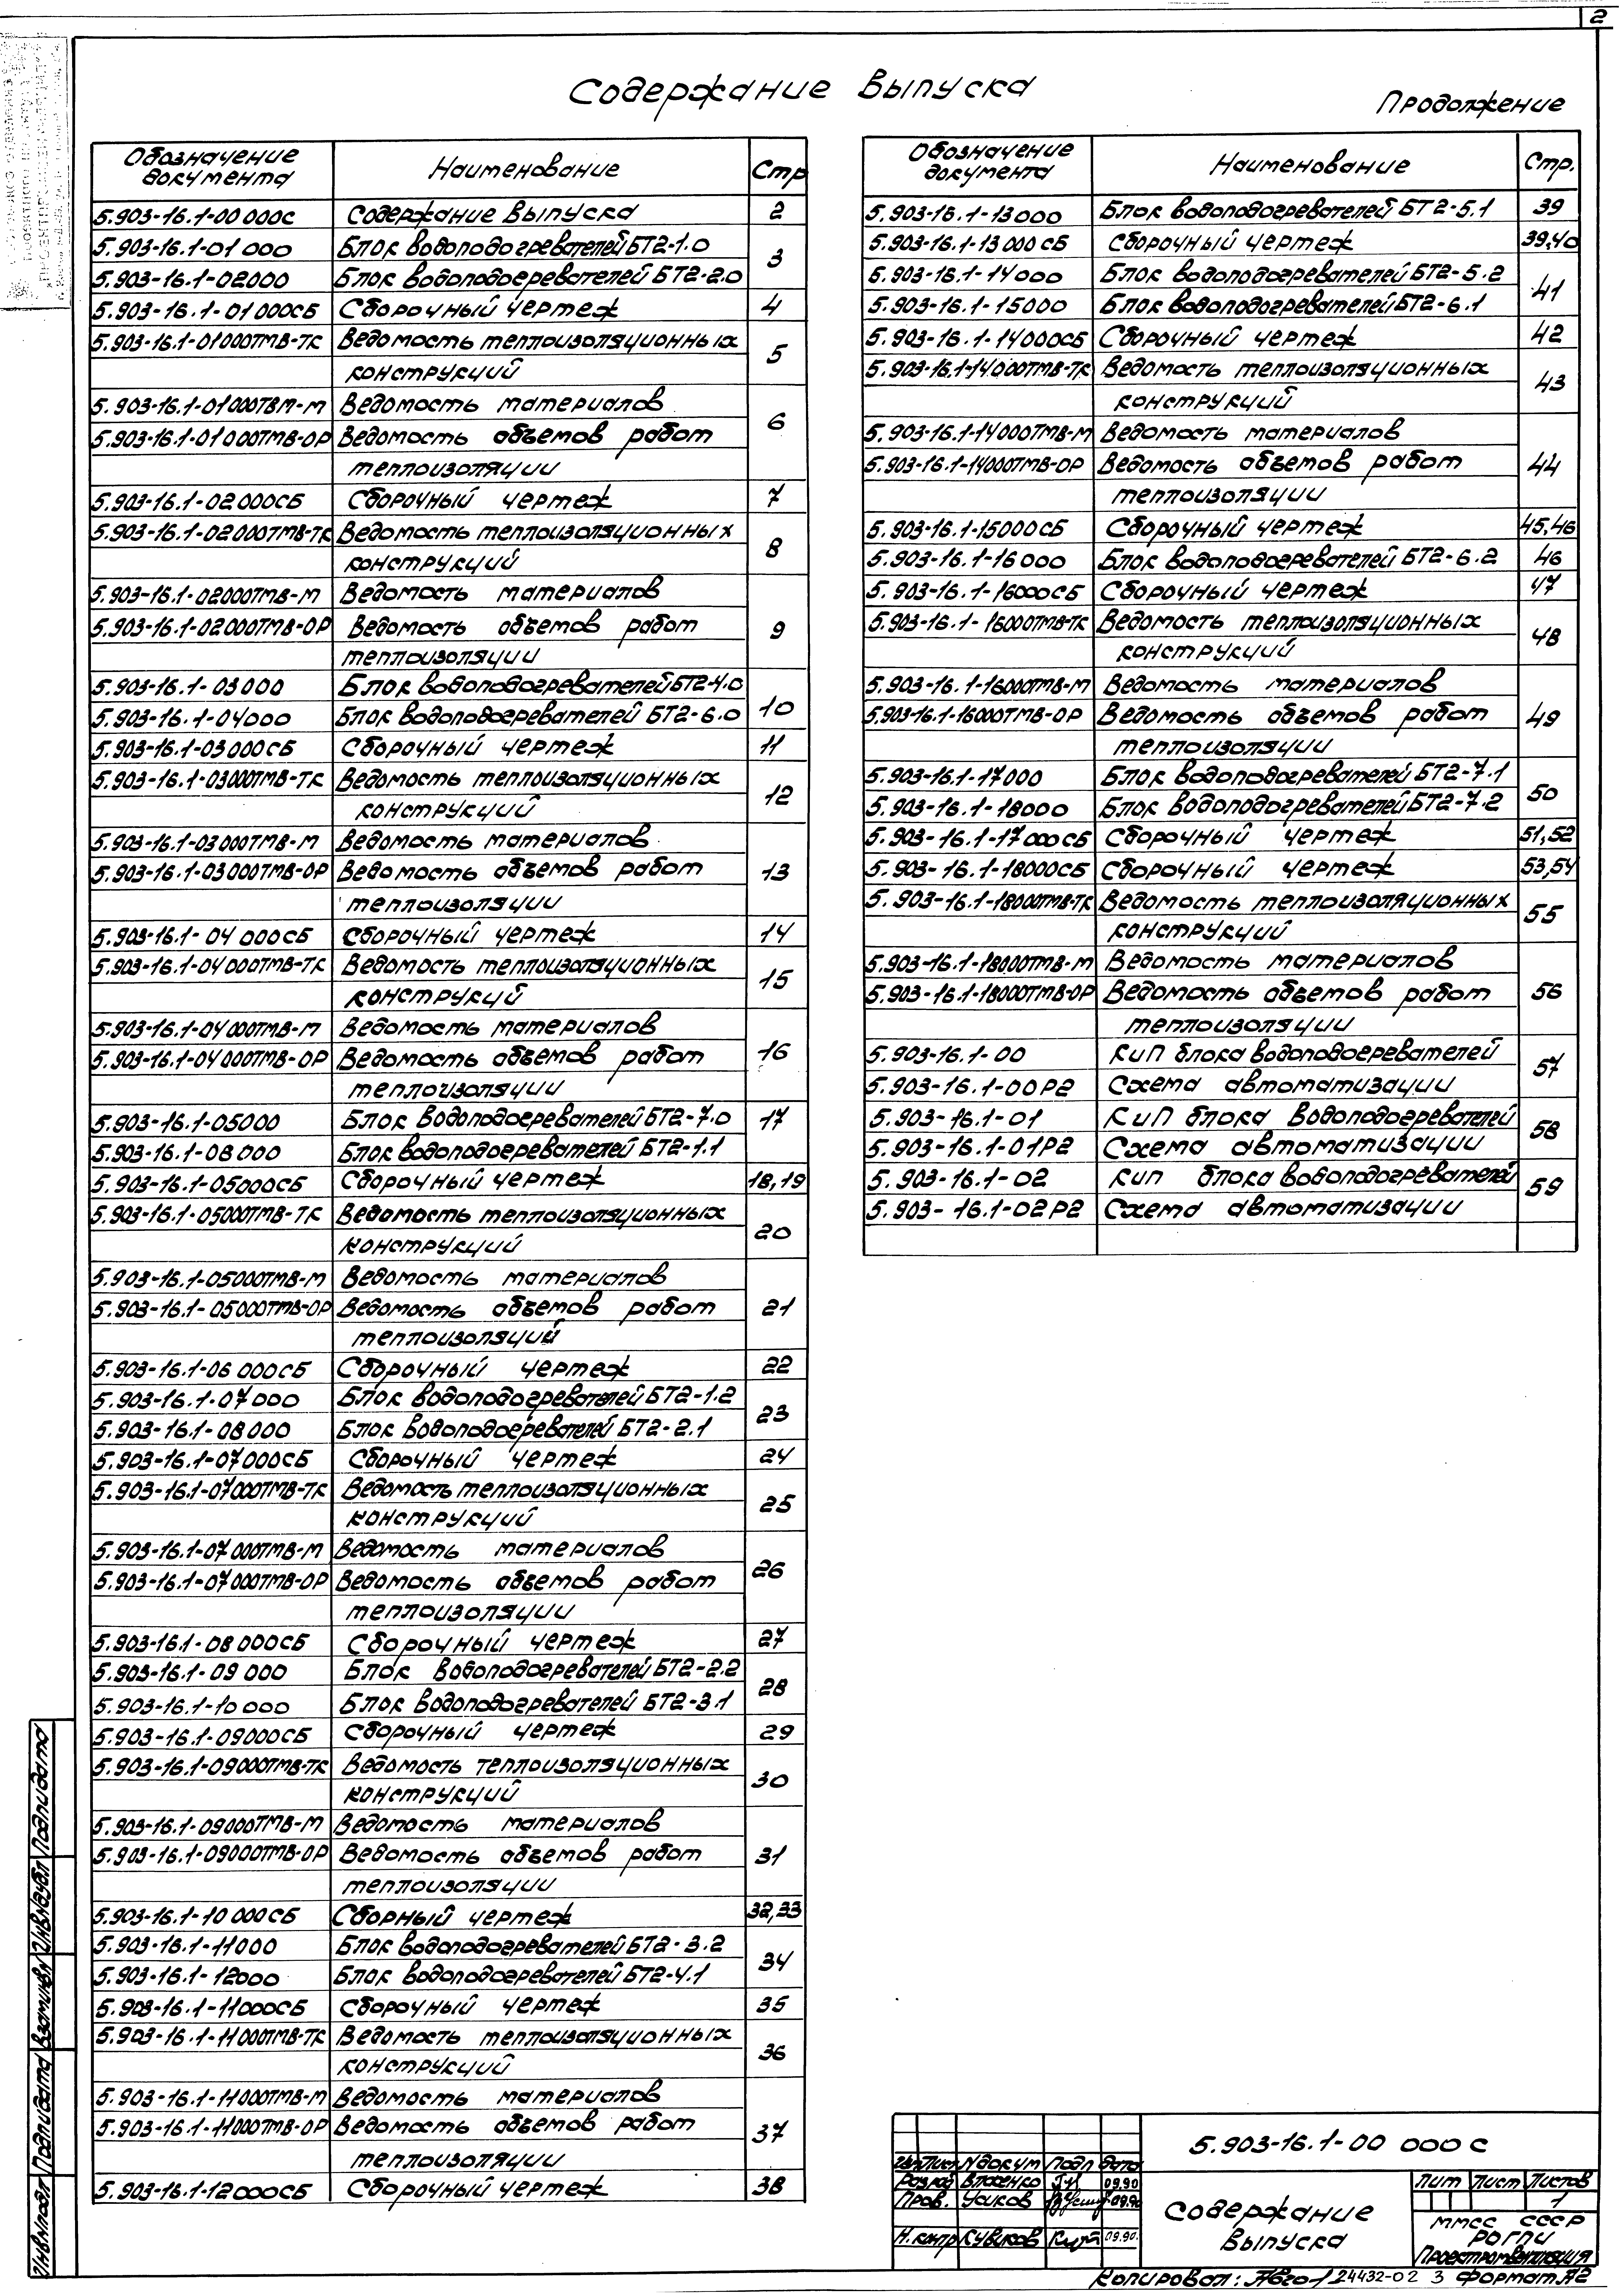 2
Содержание выпуска
Продолжение
Обозначение документа Наименование Стр
5.903-16.1-00 000С Содержание выпуска 2
5.903-16.1-01 000 Блок водоподогревателей БТ2-1.0 3
5.903-16.1-02000 Блок водоподогревателей БТ2-2.0
5.903-16.1-01 000СБ Сборочный чертеж 4
5.903-16.1-01000ТМВ-ТК Ведомость теплоизоляционных 5
конструкций
5.903-16.1-01000ТВМ-М Ведомость материалов 6
5.903-16.1-01000ТМВ-ОР Ведомость объемов работ
теплоизоляции
5.903-16.1-02 000СБ Сборочный чертеж 7
5.903-16.1-02000ТМВ-ТК Ведомость теплоизоляционных 8
конструкций
5.903-16.1-02000ТМВ-М Ведомость материалов 9
5.903-16.1-02000ТМВ-ОР Ведомость объемов работ
теплоизоляции
5.903-16.1-03000 Блок водоподогревателей БТ2-4.0 10
5.903-16.1-04000 Блок водоподогревателей БТ2-6.0
5.903-16.1-03000СБ Сборочный чертеж 11
5.903-16.1-03000ТМВ-ТК Ведомость теплоизоляционных 12
конструкций
5.903-16.1-03000ТМВ-М Ведомость материалов 13
5.903-16.1-03000ТМВ-ОР Ведомость объемов работ
теплоизоляции
5.903-16.1-04 000СБ Сборочный чертеж 14
5.903-16.1-04000ТМВ-ТК Ведомость теплоизоляционных 15
конструкций
5.903-16.1-04000ТМВ-М Ведомость материалов 16
5.903-16.1-04000ТМВ-ОР Ведомость объемов работ
теплоизоляции
5.903-16.1-05000 Блок водоподогревателей БТ2-7.0 17
5.903-16.1-08000 Блок водоподогревателей БТ2-1.1
5.903-16.1-05000СБ Сборочный чертеж 18,19
5.903-16.1-05000ТМВ-ТК Ведомость теплоизоляционных 20
конструкций
5.903-16.1-05000ТМВ-М Ведомость материалов 21
5.903-16.1-05000ТМВ-ОР Ведомость объемов работ
теплоизоляций
5.903-16.1-06 000СБ Сборочный чертеж 22
5.903-16.1-07 000 Блок водоподогревателей БТ2-1.2 23
5.903-16.1-08 000 Блок водоподогревателей БТ2-2.1
5.903-16.1-07000СБ Сборочный чертеж 24
5.903-16.1-07000ТМВ-ТК Ведомость теплоизоляционных 25
конструкций
5.903-16.1-07000ТМВ-М Ведомость материалов 26
5.903-16.1-07000ТМВ-ОР Ведомость объемов работ
теплоизоляции
5.903-16.1-08 000СБ Сборочный чертеж 27
5.903-16.1-09 000 Блок водоподогревателей БТ2-2.2 28
5.903-16.1-10 000 Блок водоподогревателей БТ2-3.1
5.903-16.1-09000СБ Сборочный чертеж 29
5.903-16.1-09000ТМВ-ТК Ведомость теплоизоляционных 30
конструкций
5.903-16.1-09000ТМВ-М Ведомость материалов 31
5.903-16.1-09000ТМВ-ОР Ведомость объемов работ
теплоизоляции
5.903-16.1-10 000СБ Сборный чертеж 32,33
5.903-16.1-11000 Блок водоподогревателей БТ2-3.2 34
5.903-16.1-12000 Блок водоподогревателей БТ2-4.1
5.903-16.1-11000СБ Сборочный чертеж 35
5.903-16.1-11000ТМВ-ТК Ведомость теплоизоляционных 36
конструкций
5.903-16.1-11000ТМВ-М Ведомость материалов 37
5.903-16.1-11000ТМВ-ОР Ведомость объемов работ
теплоизоляции
5.903-16.1-12000СБ Сборочный чертеж 38
Обозначение документа Наименование Стр.
5.903-16.1-13000 Блок водоподогревателей БТ2-5.1 39
5.903-16.1-13000СБ Сборочный чертеж 39,40
5.903-16.1-14000 Блок водоподогревателей БТ2-5.2 41
5.903-16.1-15000 Блок водоподогревателей БТ2-6.1
5.903-16.1-14000СБ Сборочный чертеж 42
5.903-16.1-14000ТМВ-ТК Ведомость теплоизоляционных 43
конструкций
5.903-16.1-14000ТМВ-М Ведомость материалов 44
5.903-16.1-14000ТМВ-ОР Ведомость объемов работ
теплоизоляции
5.903-16.1-15000СБ Сборочный чертеж 45,46
5.903-16.1-16000 Блок водоподогревателей БТ2-6.2 46
5.903-16.1-16000СБ Сборочный чертеж 47
5.903-16.1-16000ТМВ-ТК Ведомость теплоизоляционных 48
конструкций
5.903-16.1-16000ТМВ-М Ведомость материалов 49
5.903-16.1-16000ТМВ-ОР Ведомость объемов работ
теплоизоляции
5.903-16.1-17000 Блок водоподогревателей БТ2-7.1 50
5.903-16.1-18000 Блок водоподогревателей БТ2-7.2
5.903-16.1-17000СБ Сборочный чертеж 51,52
5.903-16.1-18000СБ Сборочный чертеж 53,54
5.903-16.1-18000ТМВ-ТК Ведомость теплоизоляционных 55
конструкций
5.903-16.1-18000ТМВ-М Ведомость материалов 56
5.903-16.1-18000ТМВ-ОР Ведомость объемов работ
теплоизоляции
5.903-16.1-00 КиП блока водоподогревателей 57
5.903-16.1-00Р2 Схема автоматизации
5.903-16.1-01 КиП блока водоподогревателей 58
5.903-16.1-01Р2 Схема автоматизации
5.903-16.1-02 Кип блока водоподогревателей 59
5.903-16.1-02Р2 Схема автоматизации
Инв№подл Подпидата Взаминв№ Инв№дубл Подпидата
Изм Лист №докум Подп Дата
Разраб Власенко 09.90
Пров. Усиков 09.90
Н.контр Кувиков 09.90.
5.903-16.1-00 000 С
Содержание
выпуска
Лит Лист Листов
1
ММСС СССР
РОГПИ
Проектпромвентиляция
Копировал: 24432-02 3 Формат А2